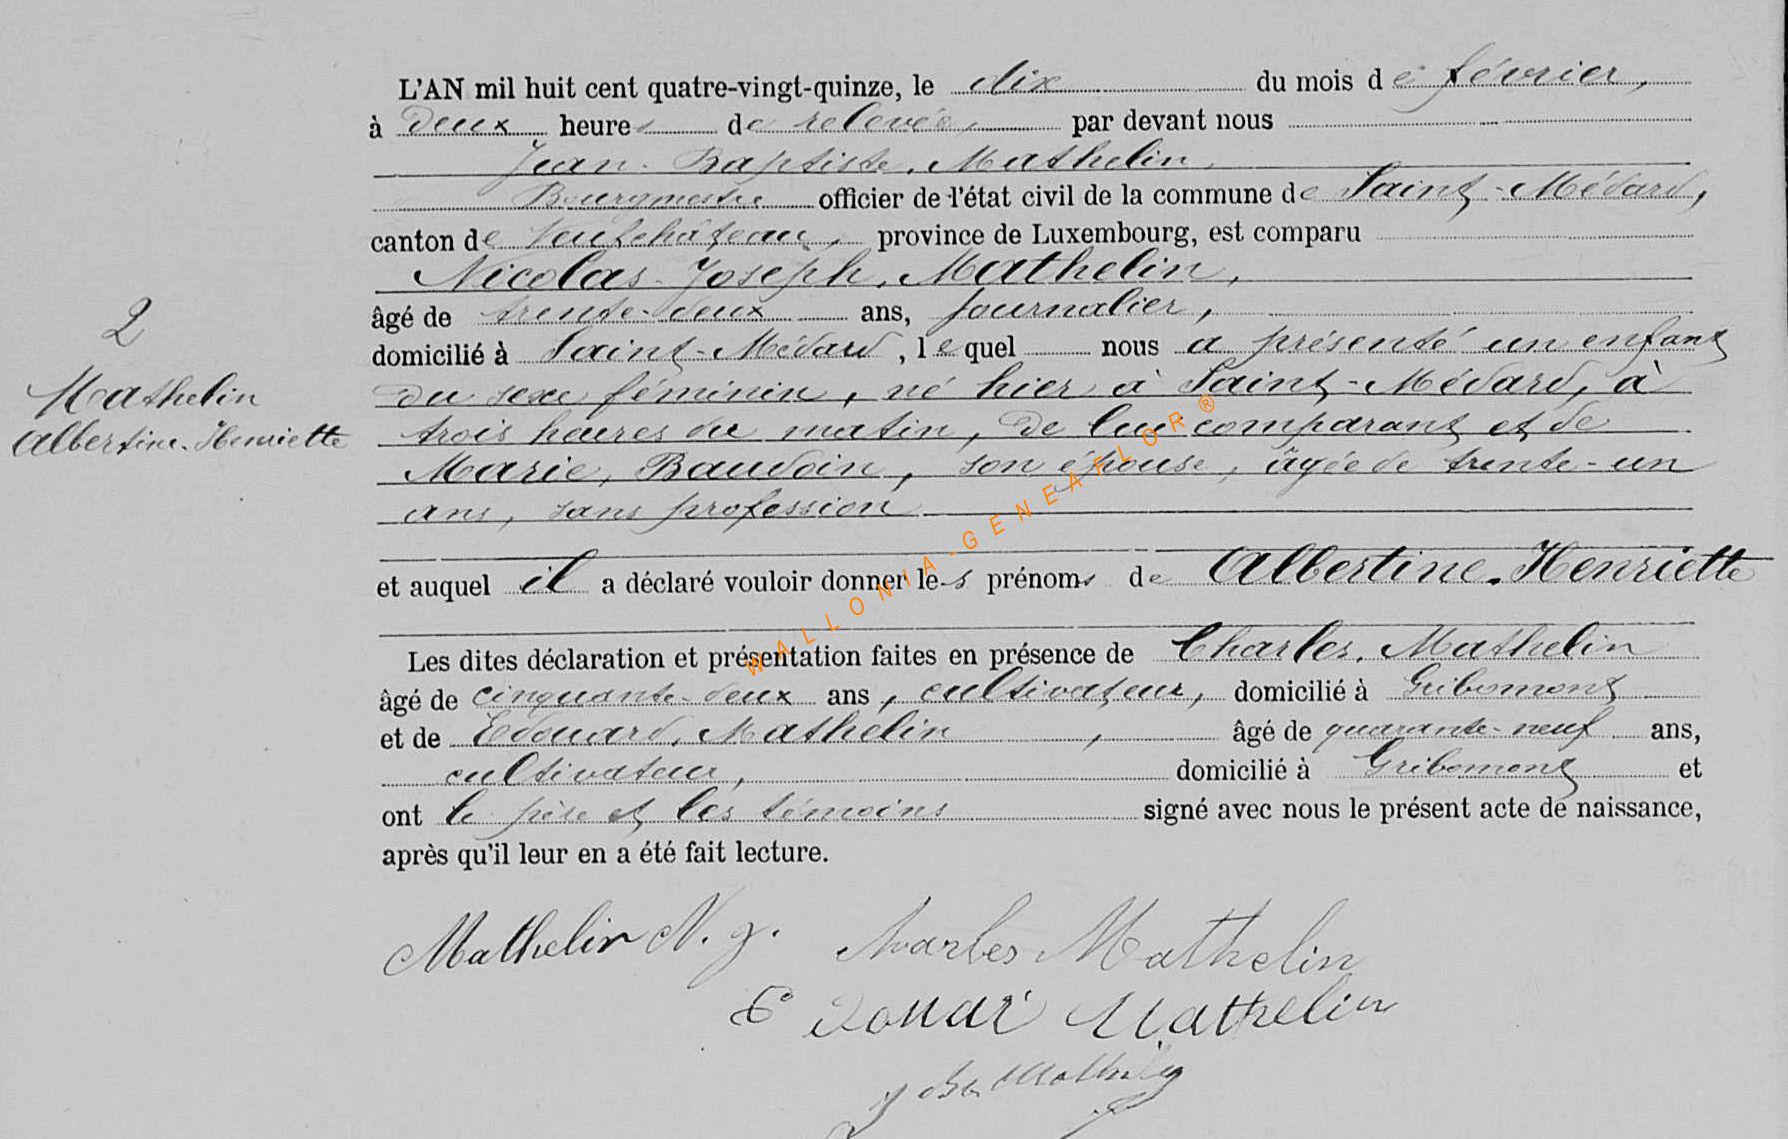 L'AN mil huit cent quatre-vingt-quinze, le dix du mois de février,
à deux heures de relevée, par devant nous
Jean-Baptiste, Mathelin,
Bourgmestre officier de l'état civil de la commune de Saint-Médard,
canton de Neufchâteau, province de Luxembourg, est comparu
Nicolas-Joseph, Mathelin,
âgé de trente-deux ans, journalier,
2
domicilié à Saint-Médard, lequel nous a présenté un enfant
Mathelin
du sexe féminin, né hier à Saint-Médard, à
Albertine-Henriette
trois heures du matin, de lui comparant et de
Marie, Baudoin, son épouse, âgée de trente-un
ans, sans profession
WALLONIA-GENEAFLOR®
et auquel il a déclaré vouloir donner les prénoms de Albertine-Henriette
Les dites déclaration et présentation faites en présence de Charles, Mathelin
âgé de cinquante-deux ans, cultivateur, domicilié à Gribomont
et de Edouard, Mathelin, âgé de quarante-neuf ans,
cultivateur, domicilié à Gribomont et
ont le père et les témoins signé avec nous le présent acte de naissance,
après qu'il leur en a été fait lecture.
Mathelin N. J. Charles Mathelin
Edouar Mathelin
J Bte Mathelin